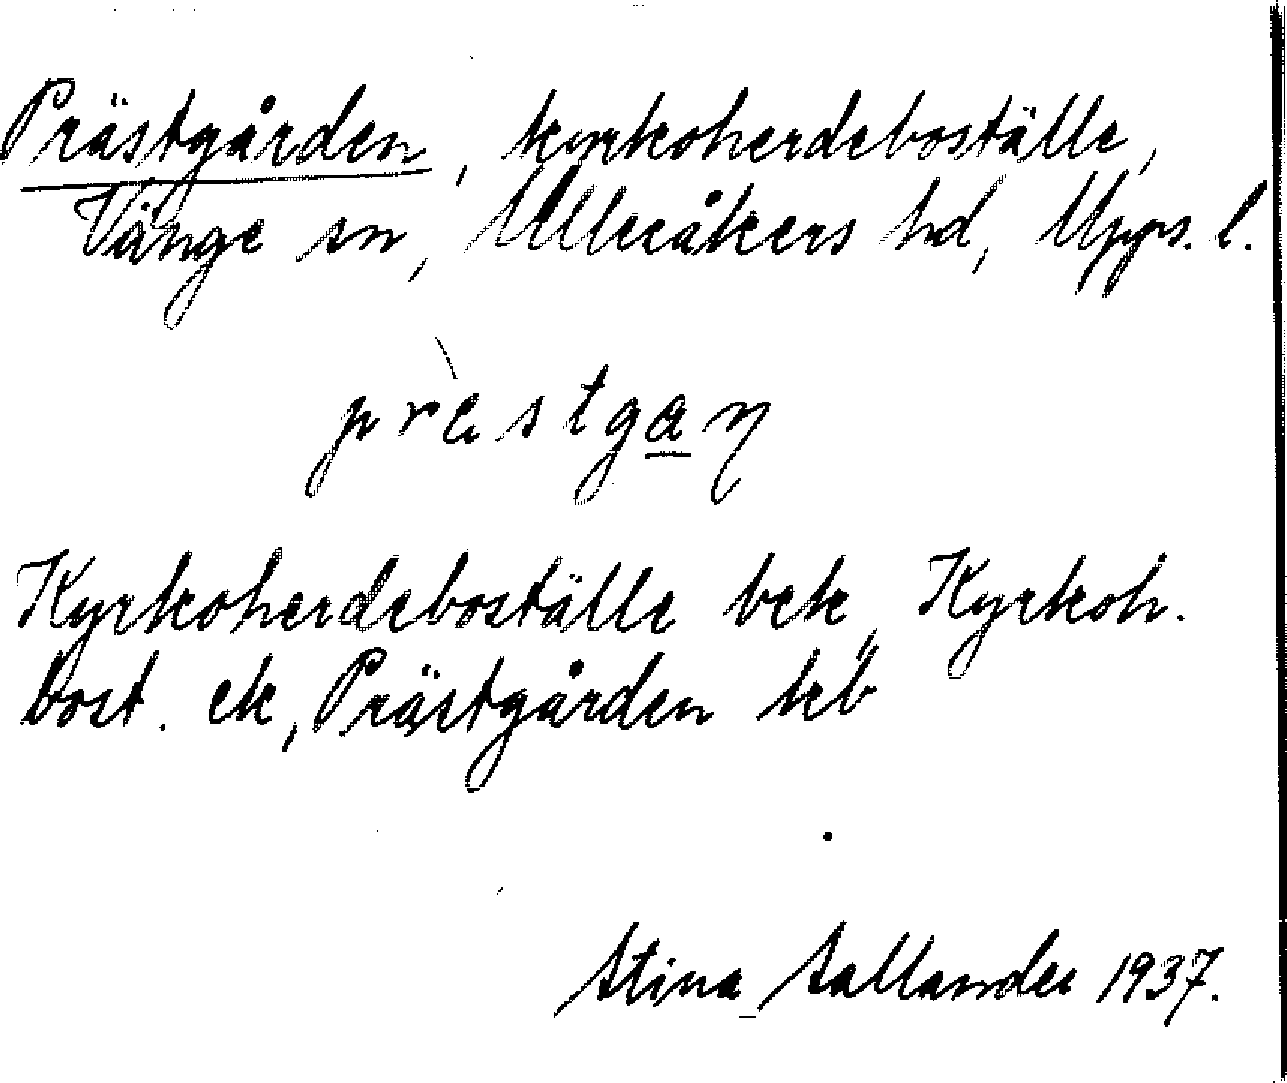 Prästgården, kyrkoherdeboställe,
Vänge sn, Ulleråkers hd, Upps. l.
prὲstgaη
Kyrkoherdeboställe bek, Kyrkoh.
bost. ek, Prästgården kb
Stina Sallander 1937.